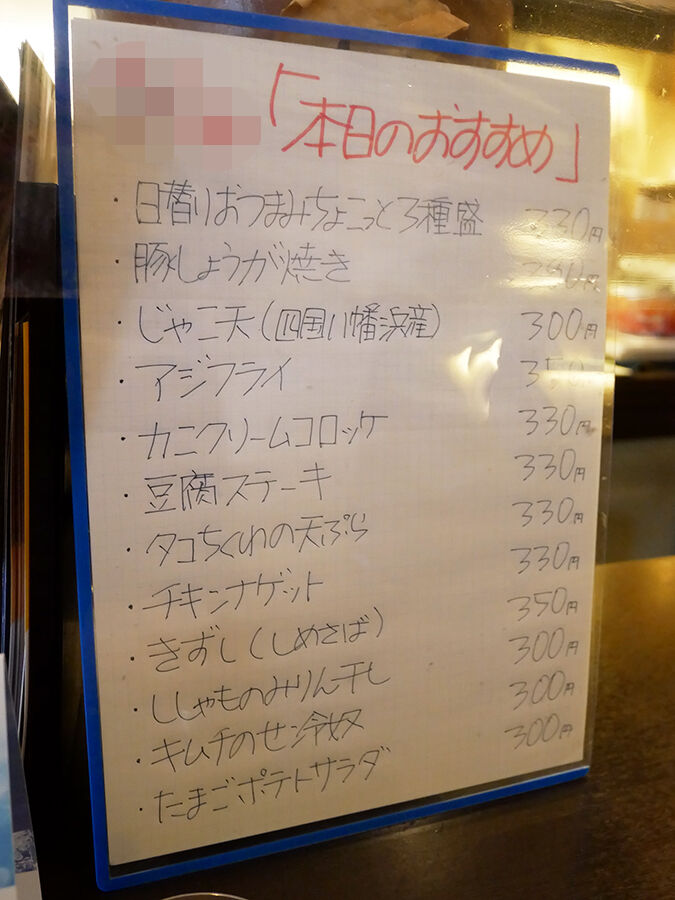 「本日のおすすめ」
・日替りおつまみちょこっと3種盛 330円
・豚しょうが焼き
・じゃこ天(四国八幡浜産) 300円
・アジフライ 350円
・カニクリームコロッケ 330円
・豆腐ステーキ 330円
・タコちくわの天ぷら 330円
・チキンナゲット 330円
・きずし(しめさば) 350円
・ししゃものみりん干し 300円
・キムチのせ冷奴 300円
・たまごポテトサラダ 300円